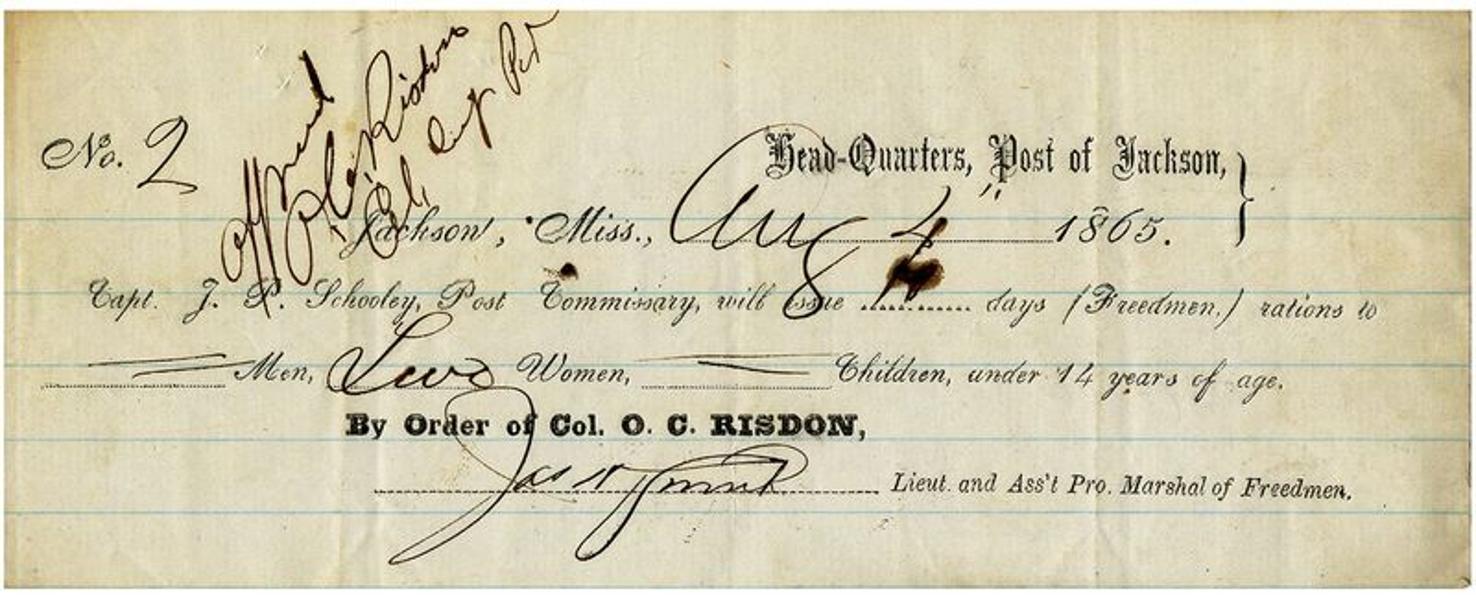 No. 2
Approved
O. C. Risdon
Col.
Head-Quarters, Post of Jackson,
Jackson, Miss., Aug 4" 1865.
Capt. J. P. Schooley, Post Commissary, will issue .......... days (Freedmen,) rations to
Men, Two Women, Children, under 14 years of age.
By Order of Col. O. C. RISDON,
Lieut. and Ass't Pro. Marshal of Freedmen.